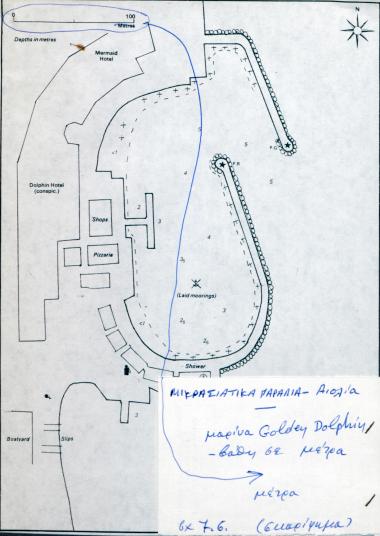 0 100
Metres
Depths in metres
N
Mermaid
Hotel
F.G
F.R
5
5
5
4
Dolphin Hotel
(conspic.)
<1
2
3
Shops
4
Pizzeria
3₅
(Laid moorings)
3
<1
2₅
2₅
Shower
3
Boatyard
Slips
ΜΙΚΡΑΣΙΑΤΙΚΑ ΠΑΡΑΛΙΑ - Αιολία
μαρίνα Golden Dolphin
- βάθη σε μέτρα
μέτρα
σχ 7.6. (σκαρίφημα)